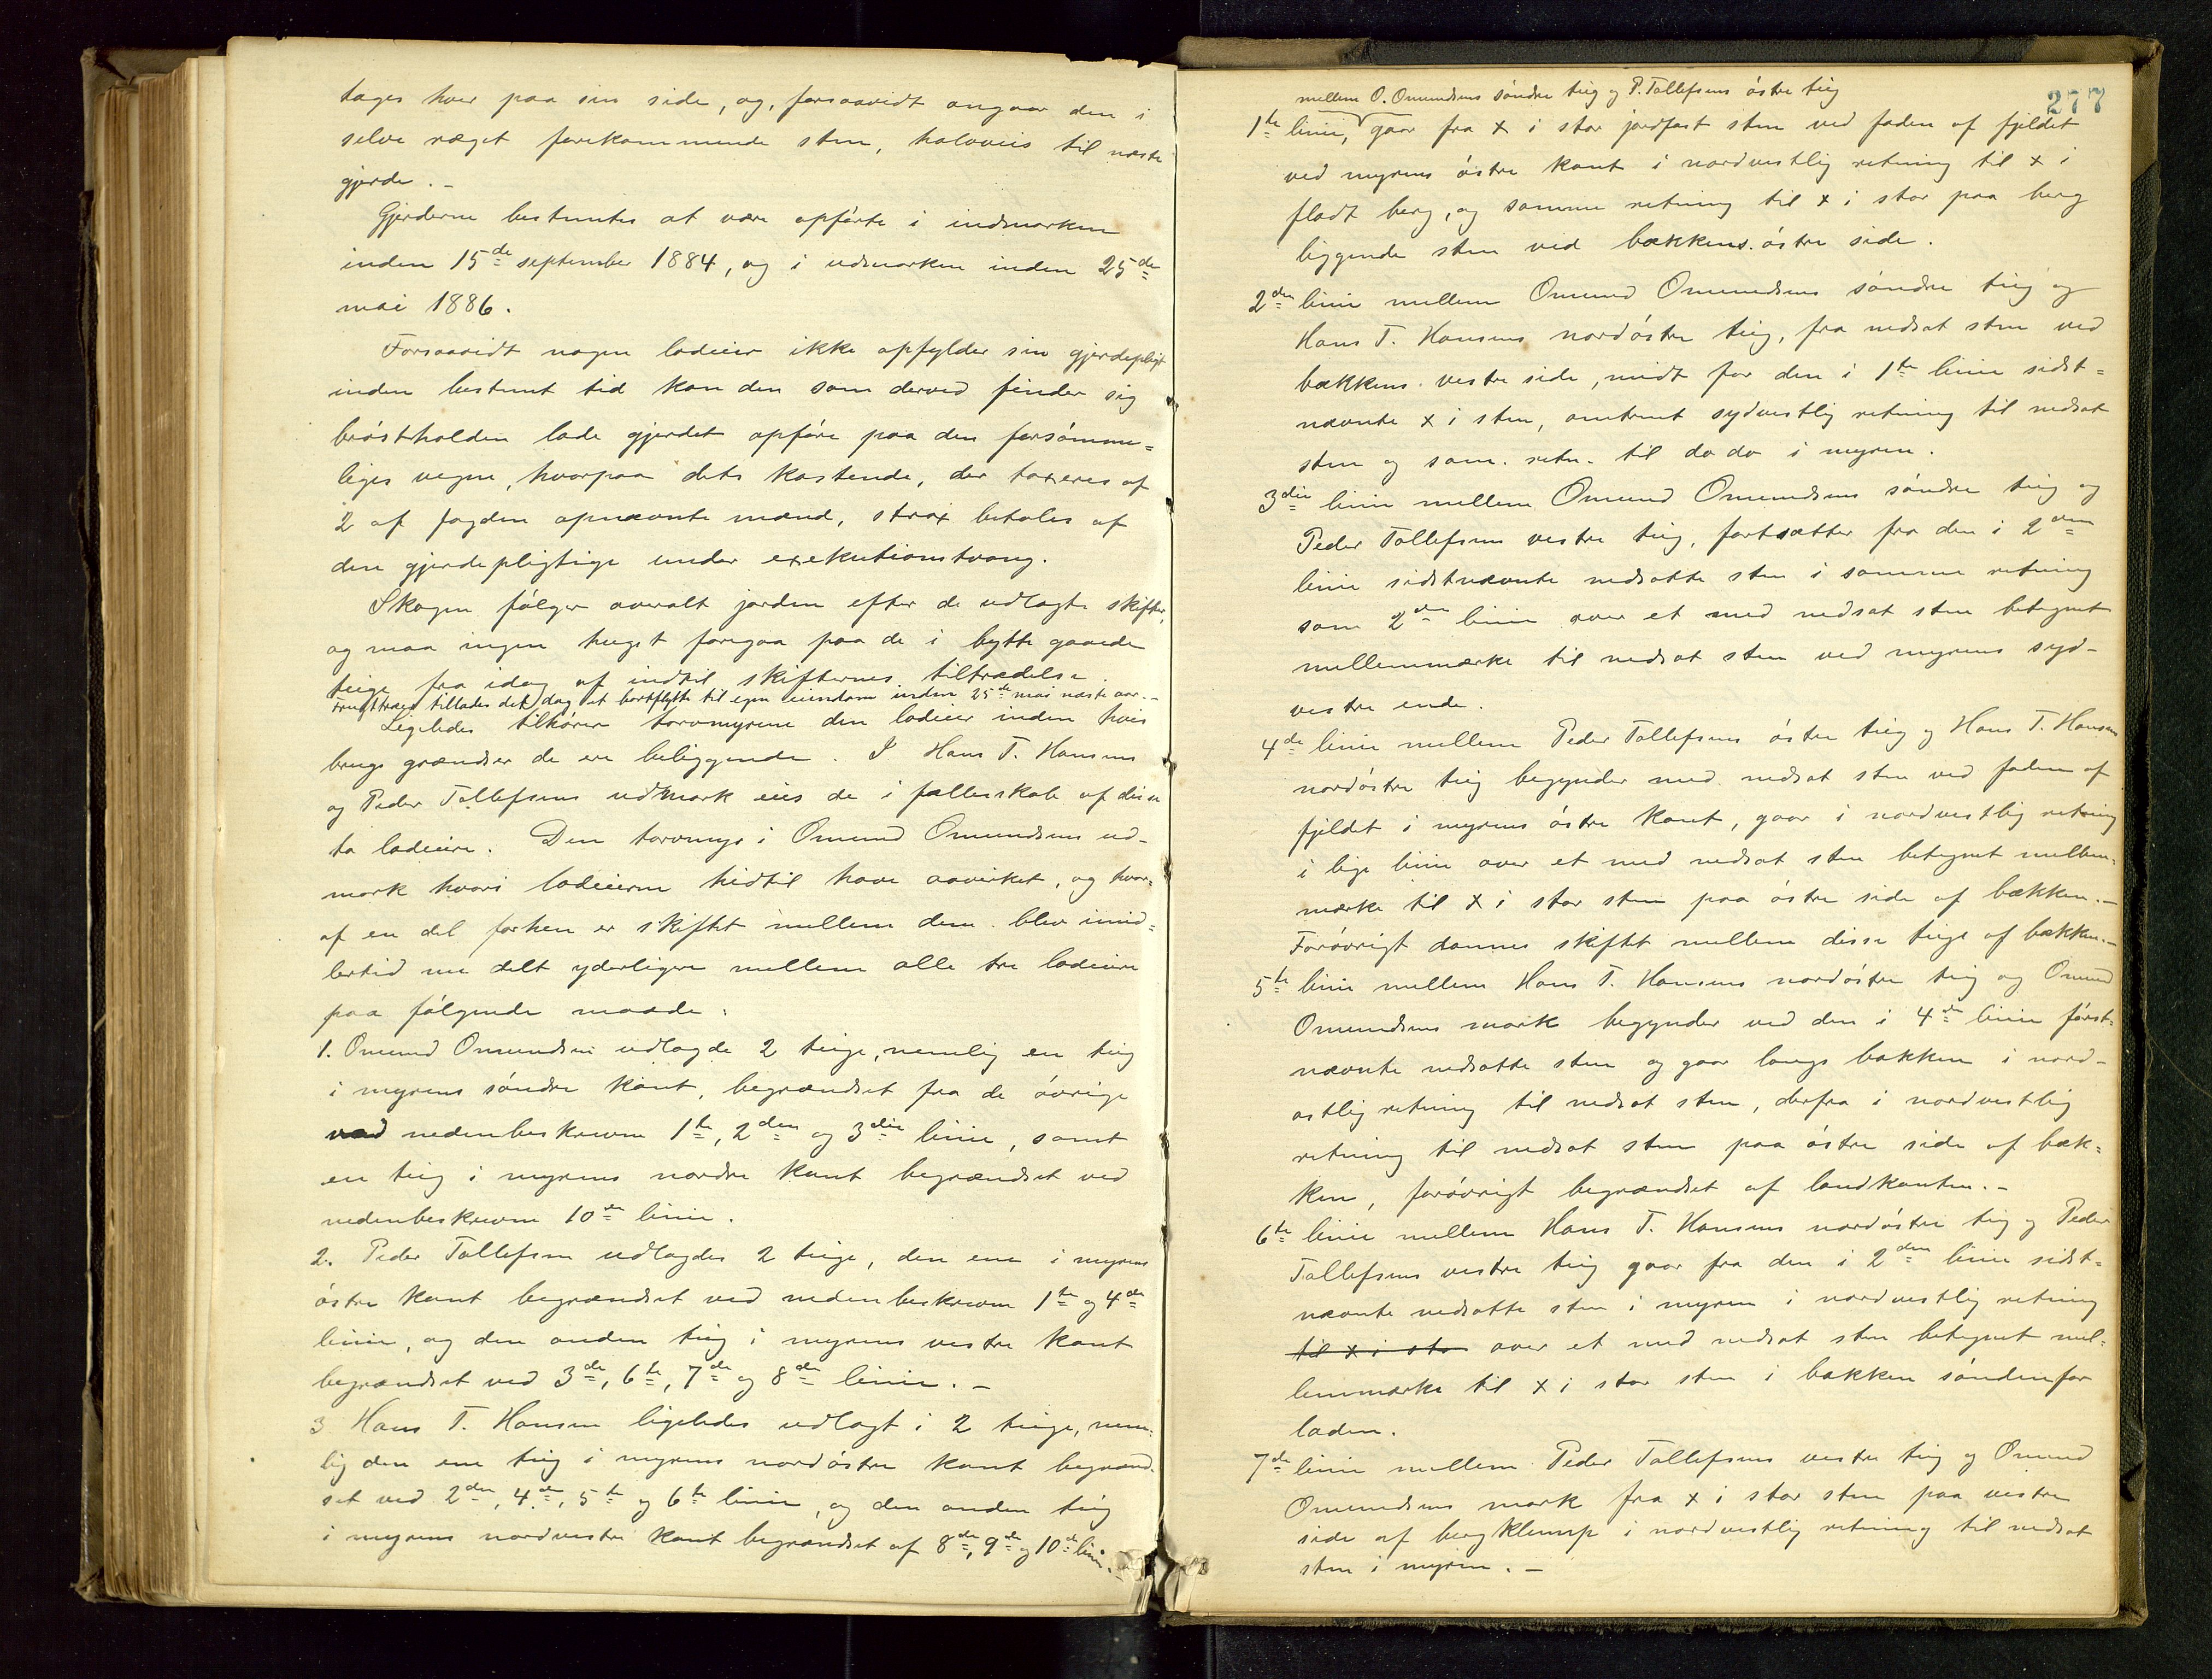 tages hver paa sin side, og, forsaavidt angaar den i
selve ræget forekommende sten, halvveis til næste
gjerde. -
Gjerderne bestemtes at være opførte i indmarken
inden 15de september 1884, og i udmarken inden 25de
mai 1886.
Forsaavidt nogen lodeier ikke opfylder sin gjerdepligt
inden bestemt tid kan den som derved finder sig
brøstholden lade gjerdet opføre paa den forsømme=
liges vegne, hvorpaa dets kostende, der taxeres af
2 af fogden opnævnte mænd, strax betales af
den gjerdepligtige under exekutionstvang.
Skogen følger overalt jorden efter de udlagte skifter,
og maa ingen hugst foregaa paa de i bytte gaaede
teige fra idag af indtil skifternes tiltrædelse.
Frugttræer tillades det dog at bortflytte til egen eiendom inden 25de mai næste aar. -
Ligeledes tilhører torvmyrene den lodeier inden hvis
brugs grændser de ere beliggende. I Hans T. Hansens
og Peder Tollefsens udmark eies de i fællesskab af disse
to lodeiere. Den torvmyr i Omund Omundsens ud-
mark hvori lodeierne hidtil have aavirket, og hvor=
af en del forhen er skiftet mellem dem blev imid=
lertid nu delt yderligere mellem alle tre lodeiere
paa følgende maade:
1. Omund Omundsen udlagde 2 teige, nemlig en teig
i myrens søndre kant, begrændset fra de øvrige
ved nedenbeskrevne 1te, 2den og 3die linie, samt
en teig i myrens nordre kant begrændset ved
nedenbeskrevne 10de linie.
2. Peder Tollefsen udlagdes 2 teige, den ene i myrens
østre kant begrændset ved nedenbeskrevne 1te og 4de
linie, og den anden teig i myrens vestre kant
begrændset ved 3de, 6te, 7de og 8de linie. -
3 Hans T. Hansen ligeledes udlagt i 2 teige, nem=
lig den ene teig i myrens nordøstre kant begrænd=
set ved 2den, 4de, 5te og 6te linie, og den anden teig
i myrens nordvestre kant begrændset af 8de, 9de og 10de linie. -
277
mellem O. Omundsens søndre teig og P. Tollefsens østre teig
1te linie, gaar fra x i stor jordfast sten ved foden af fjeldet
ved myrens østre kant i nordvestlig retning til x i
fladt berg, og samme retning til x i stor paa berg
liggende sten ved bækkens østre side.
2den linie mellem Omund Omundsens søndre teig og
Hans T. Hansens nordøstre teig, fra nedsat sten ved
bækkens vestre side, midt for den i 1te linie sidst=
nævnte x i sten, omtrent sydvestlig retning til nedsat
sten og sam. retn. til do do i myren.
3die linie mellem Omund Omundsens søndre teig og
Peder Tollefsens vestre teig, fortsætter fra den i 2den
linie sidstnævnte nedsatte sten i samme retning
som 2den linie over et med nedsat sten betegnet
mellemmærke til nedsat sten ved myrens syd-
vestre ende.
4de linie mellem Peder Tollefsens østre teig og Hans T. Hansens
nordøstre teig begynder med nedsat sten ved foden af
fjeldet i myrens østre kant, gaar i nordvestlig retning
i lige linie over et med nedsat sten betegnet mellem=
mærke til x i stor sten paa østre side af bækken. -
Forøvrigt dannes skiftet mellem disse teige af bækken. -
5te linie mellem Hans T. Hansens nordøstre teig og Omund
Omundsens mark begynder ved den i 4de linie først=
nævnte nedsatte sten og gaar langs bakken i nord-
ostlig retning til nedsat sten, derfra i nordvestlig
retning til nedsat sten paa østre side af bæk=
ken, forøvrigt begrændset af landkanten. -
6te linie mellem Hans T. Hansens nordøstre teig og Peder
Tollefsens vestre teig gaar fra den i 2den linie sidst=
nævnte nedsatte sten i myren i nordvestlig retning
til x i sto over et med nedsat sten betegnet mel=
lemmærke til x i stor sten i bakken søndenfor
laden.
7de linie mellem Peder Tollefsens vestre teig og Omund
Omundsens mark fra x i stor sten paa vestre
side af bergklump i nordvestlig retning til nedsat
sten i myren. -